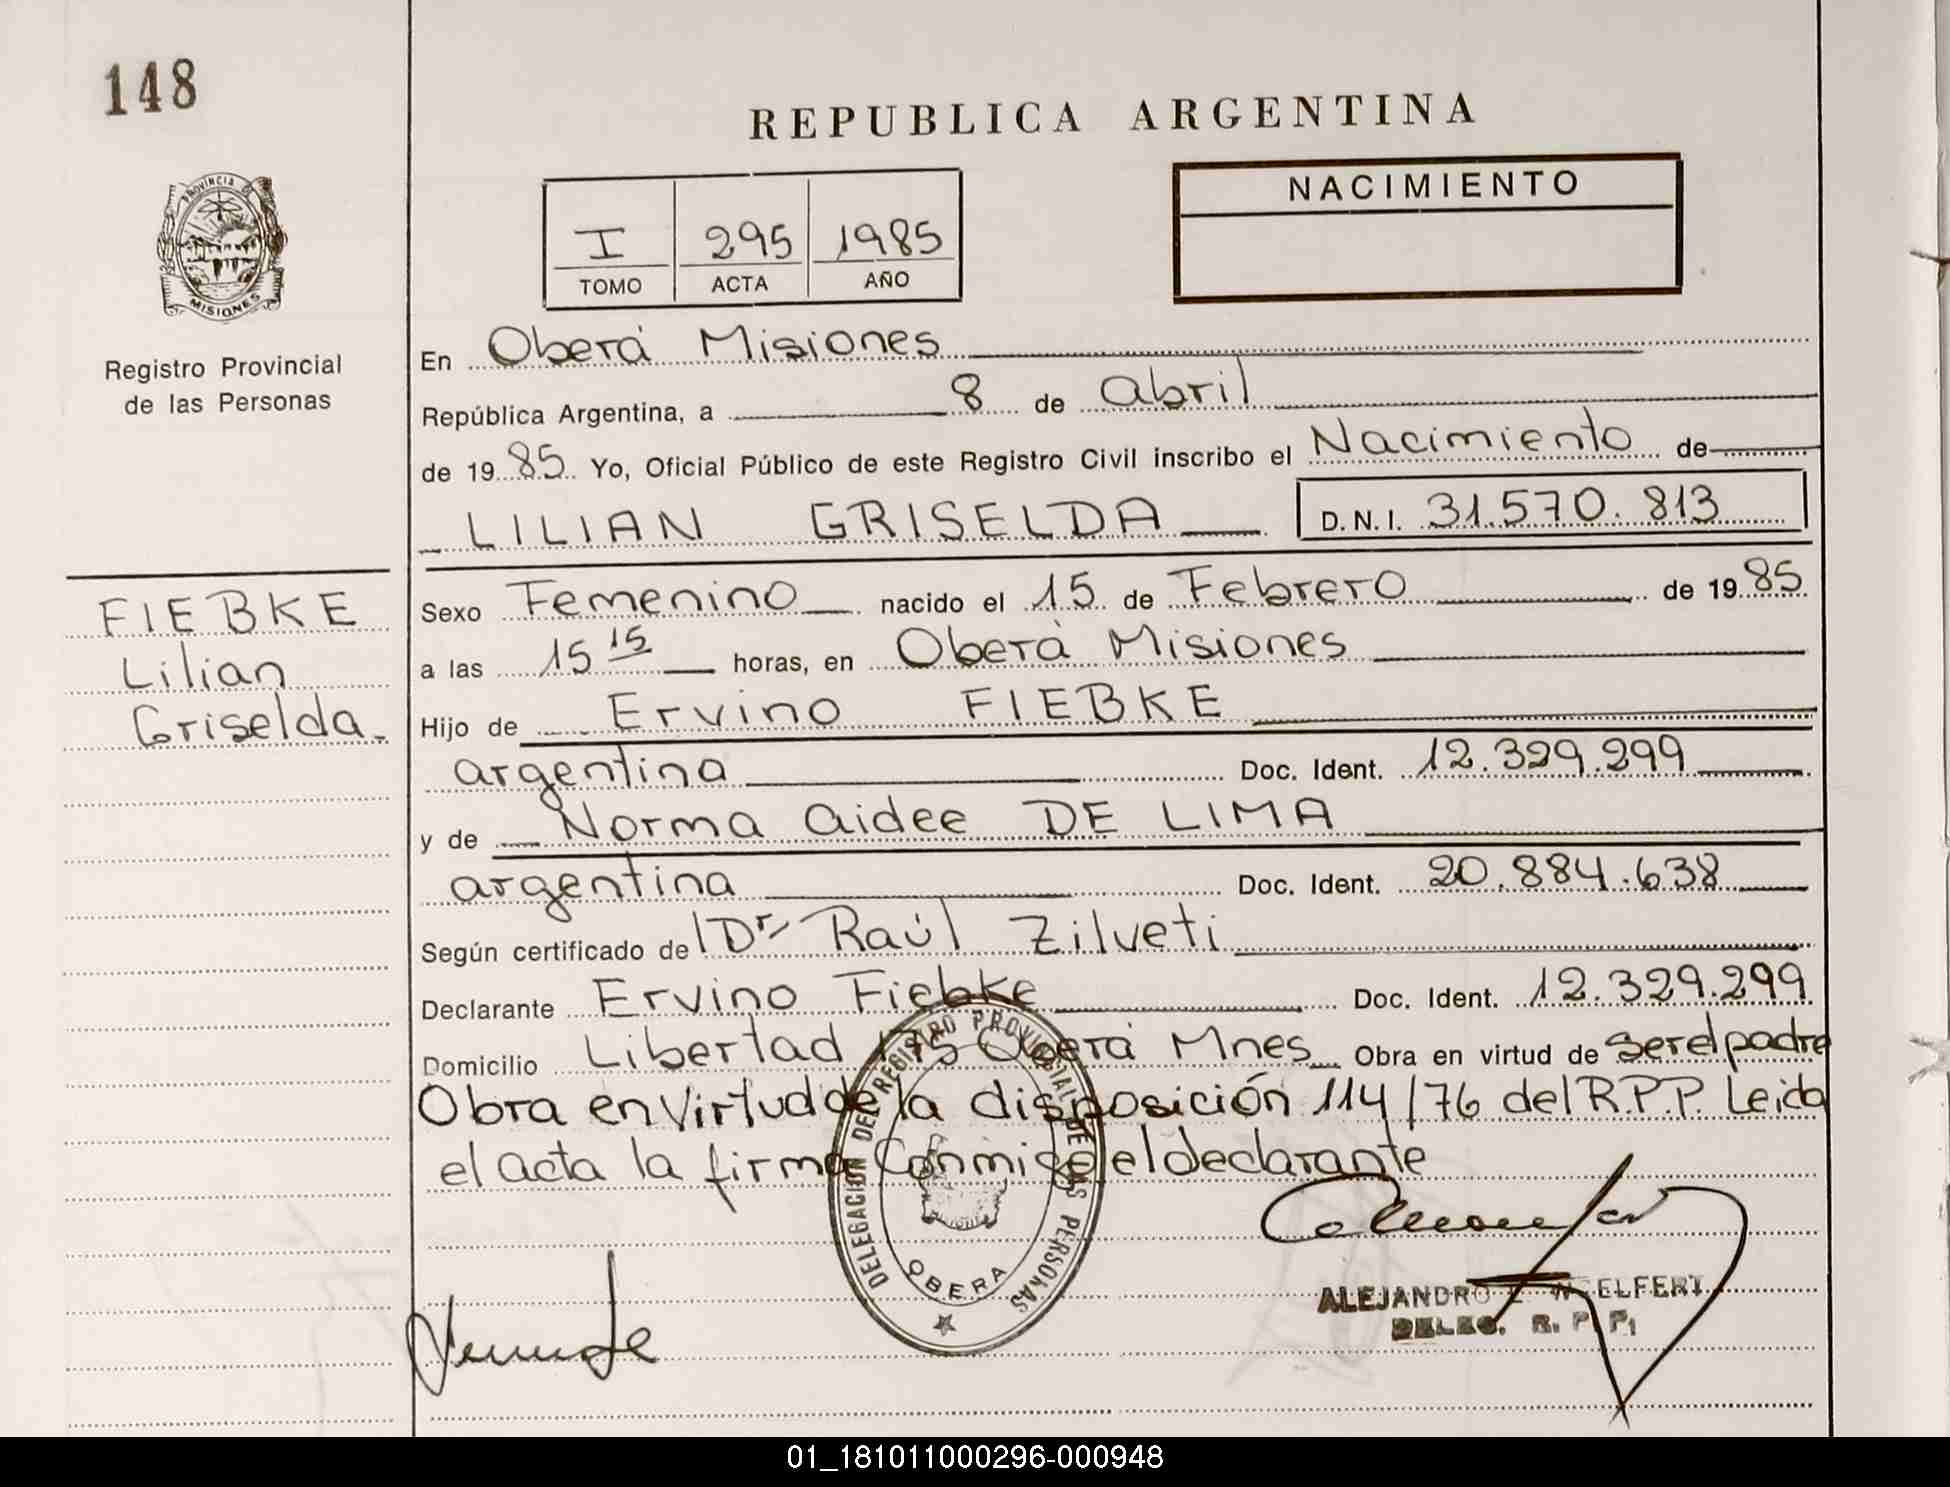 148
REPUBLICA ARGENTINA
PROVINCIA DE MISIONES
Registro Provincial
de las Personas
I 295 1985
TOMO ACTA AÑO
NACIMIENTO
En Oberá Misiones
República Argentina, a 8 de abril
de 1985 Yo, Oficial Público de este Registro Civil inscribo el Nacimiento de
LILIAN GRISELDA D.N.I. 31.570.813
FIEBKE
Lilian
Griselda.
Sexo Femenino nacido el 15 de Febrero de 1985
a las 15 15 horas, en Oberá Misiones
Hijo de Ervino FIEBKE
argentina Doc. Ident. 12.329.299
y de Norma aidee DE LIMA
argentina Doc. Ident. 20.884.638
Según certificado de Dr Raúl Zilveti
Declarante Ervino Fiebke Doc. Ident. 12.329.299
Domicilio Libertad 175 Oberá Mnes Obra en virtud de ser el padre
Obra en virtud de la disposición 114/76 del R.P.P. Leida
el acta la firma conmigo el declarante
DELEGACION DEL REGISTRO PROVINCIAL DE LAS PERSONAS
OBERA
ALEJANDRO
DELEG. R. P. P.
01_181011000296-000948